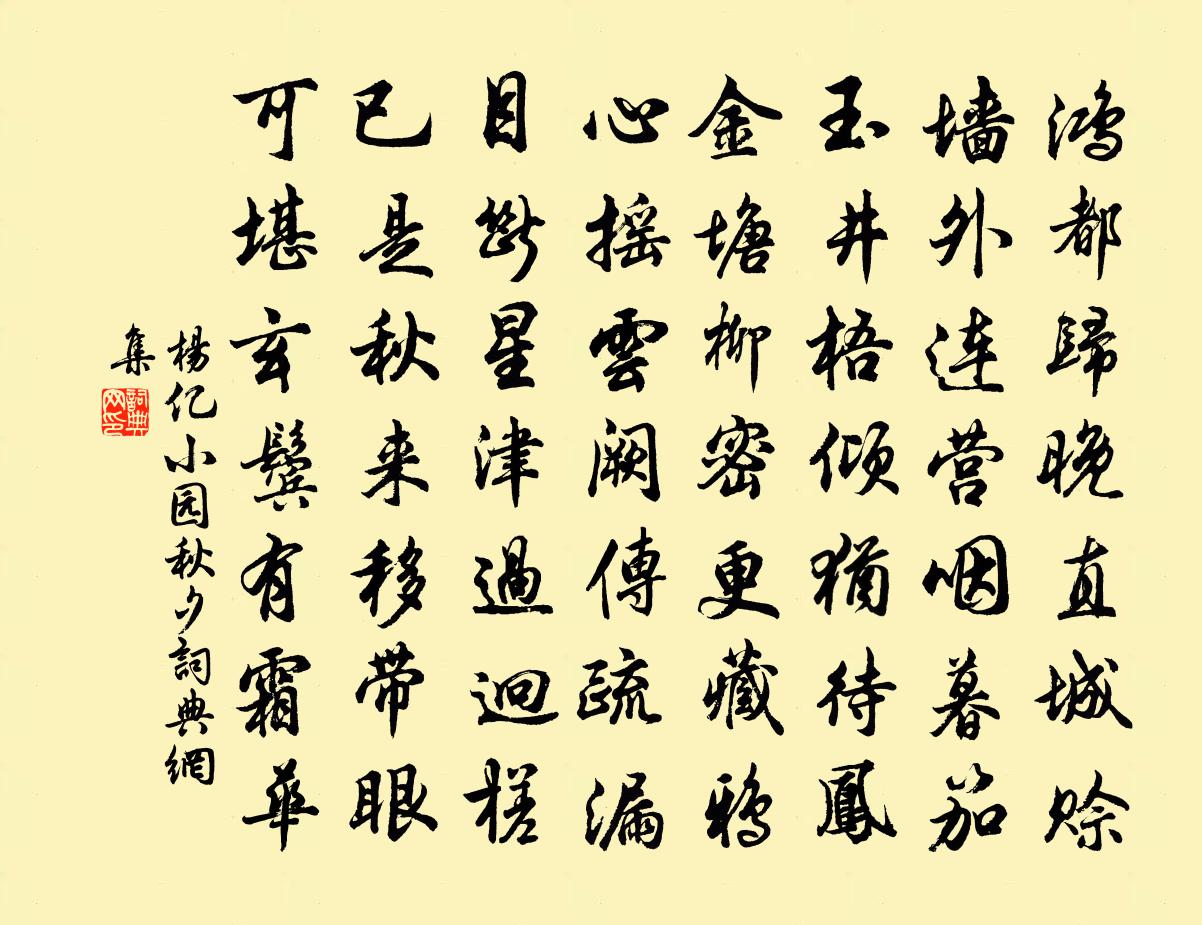 鸿都歸晚直城赊
墙外连营咽暮笳
玉井梧倾猶待鳳
金塘柳密更藏鸦
心摇雲阙傳疏漏
目断星津過迥槎
已是秋来移带眼
可堪玄鬓有霜華
楊亿小园秋夕詞典網
集
詞典网印